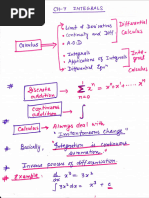 CH-7 INTEGRALS
* Limit & Derivatives
* Continuity and Diff
* A.O.D
Differential
Calculus
Calculus
* Integrals
* Applications of Integrals
* Differential Eqnˢ
Integral
Calculus
* Discrete
addition
∑ xⁿ = x⁰+x¹+....x¹⁰
n=0
* Continuous
addition
∫
* Calculus - Always deal with
"Instantaneous change"
* Basically, "Integration is continuous
summation"
* Inverse process of differentiation
* Example:
d/dx x³ = 3x²
∫ 3x² dx = x³ + c